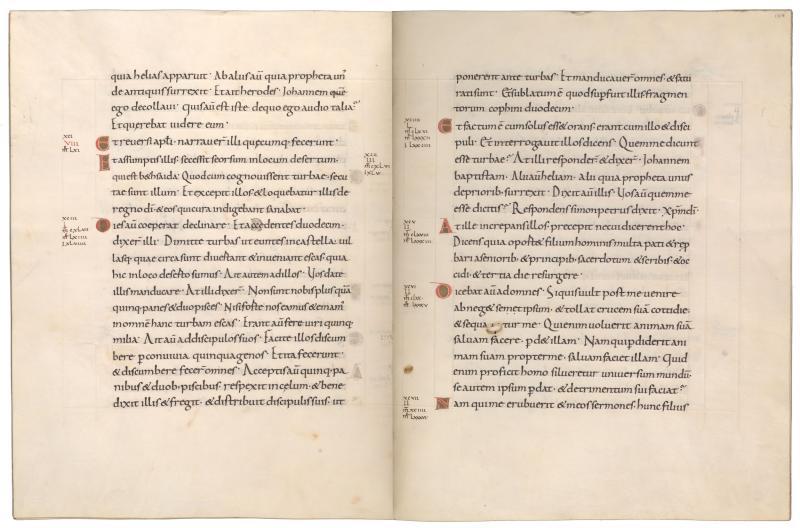 quia helias apparuit · Ab aliis aū quia propheta un'
de antiquis surrexit · Et ait herodes · Johannem que
ego decollavi · quis aū est iste · de quo ego audio talia?
Et querebat videre eum ·
Et reversi apłi · narraver illi quecumq; fecerunt ·
Et assumptis illis · secessit seorsum in locum desertum ·
qui est bethsaida · Quod cum cognovissent turbae · secu
tae sunt illum · Et excepit illos & loquebatur illis de
regno dī · & eos qui cura indigebant sanabat ·
Dies aū coeperat declinare · Et accedentes duodecim ·
dixer illi · Dimitte turbas · ut euntes in castella · vil
lasq; quae circa sunt divertant · & inveniant escas · quia
hic in loco deserto sumus · Ait autem ad illos · Vos date
illis manducare · At illi dixer · Non sunt nobis plus quā
quinq; panes & duo pisces · Nisi forte nos eamus & emam'
in omnem hanc turbam escas · Erant aū fere viri quinq;
milia · Ait aū ad discipulos suos · Facite illos discum
bere p convivia quinquagenos · Et ita fecerunt ·
& discumbere fecer omnes · Acceptis aū quinq; pa
nibus & duob; piscibus · respexit in celum · & bene
dixit illis & fregit · & distribuit discipulis suis · ut
ponerent ante turbas · Et manducaver omnes · & satu
rati sunt · Et sublatum ē quod supfuit illis fragmen
torum cophini duodecim ·
Et factum ē cum solus esset orans · erant cum illo & disci
puli · Et interrogavit illos dicens · Quem me dicunt
esse turbae? At illi responder & dixer · Johannem
baptistam · Alii aū heliam · alii quia propheta unus
de priorib; surrexit · Dixit aū illis · Vos aū quem me
esse dictis? Respondens simon petrus dixit · Xp̄m dī
At ille increpans illos · precepit ne cui dicerent hoc ·
Dicens quia oport& filium hominis multa pati · & rep
bari a seniorib; & principib; sacerdotum & scribis · & oc
cidi · & tertia die resurgere ·
Dicebat aū ad omnes · Si quis vult post me venire
abneg& semet ipsum · & tollat crucem suā cottidie ·
& sequatur me · Qui enim voluerit animam suā
salvam facere · pd& illam · Nam qui pdiderit ani
mam suam propter me · salvam faciet illam · Quid
enim proficit homo si lucretur universum mundū ·
se autem ipsum pdat · & detrimentum sui faciat?
Nam qui me erubuerit & meos sermones · hunc filius